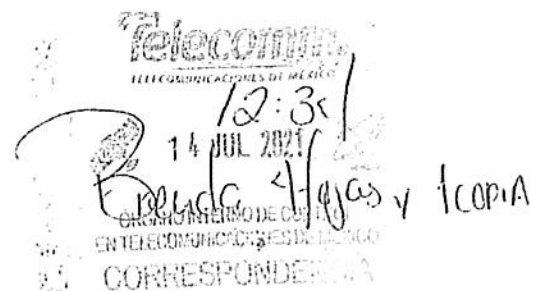 Telecomm.
TELECOMUNICACIONES DE MÉXICO
12:3
14 JUL 2021
Brenda 4 Hojas y 1 COPIA
ÓRGANO INTERNO DE CONTROL
EN TELECOMUNICACIONES DE MÉXICO
CORRESPONDENCIA